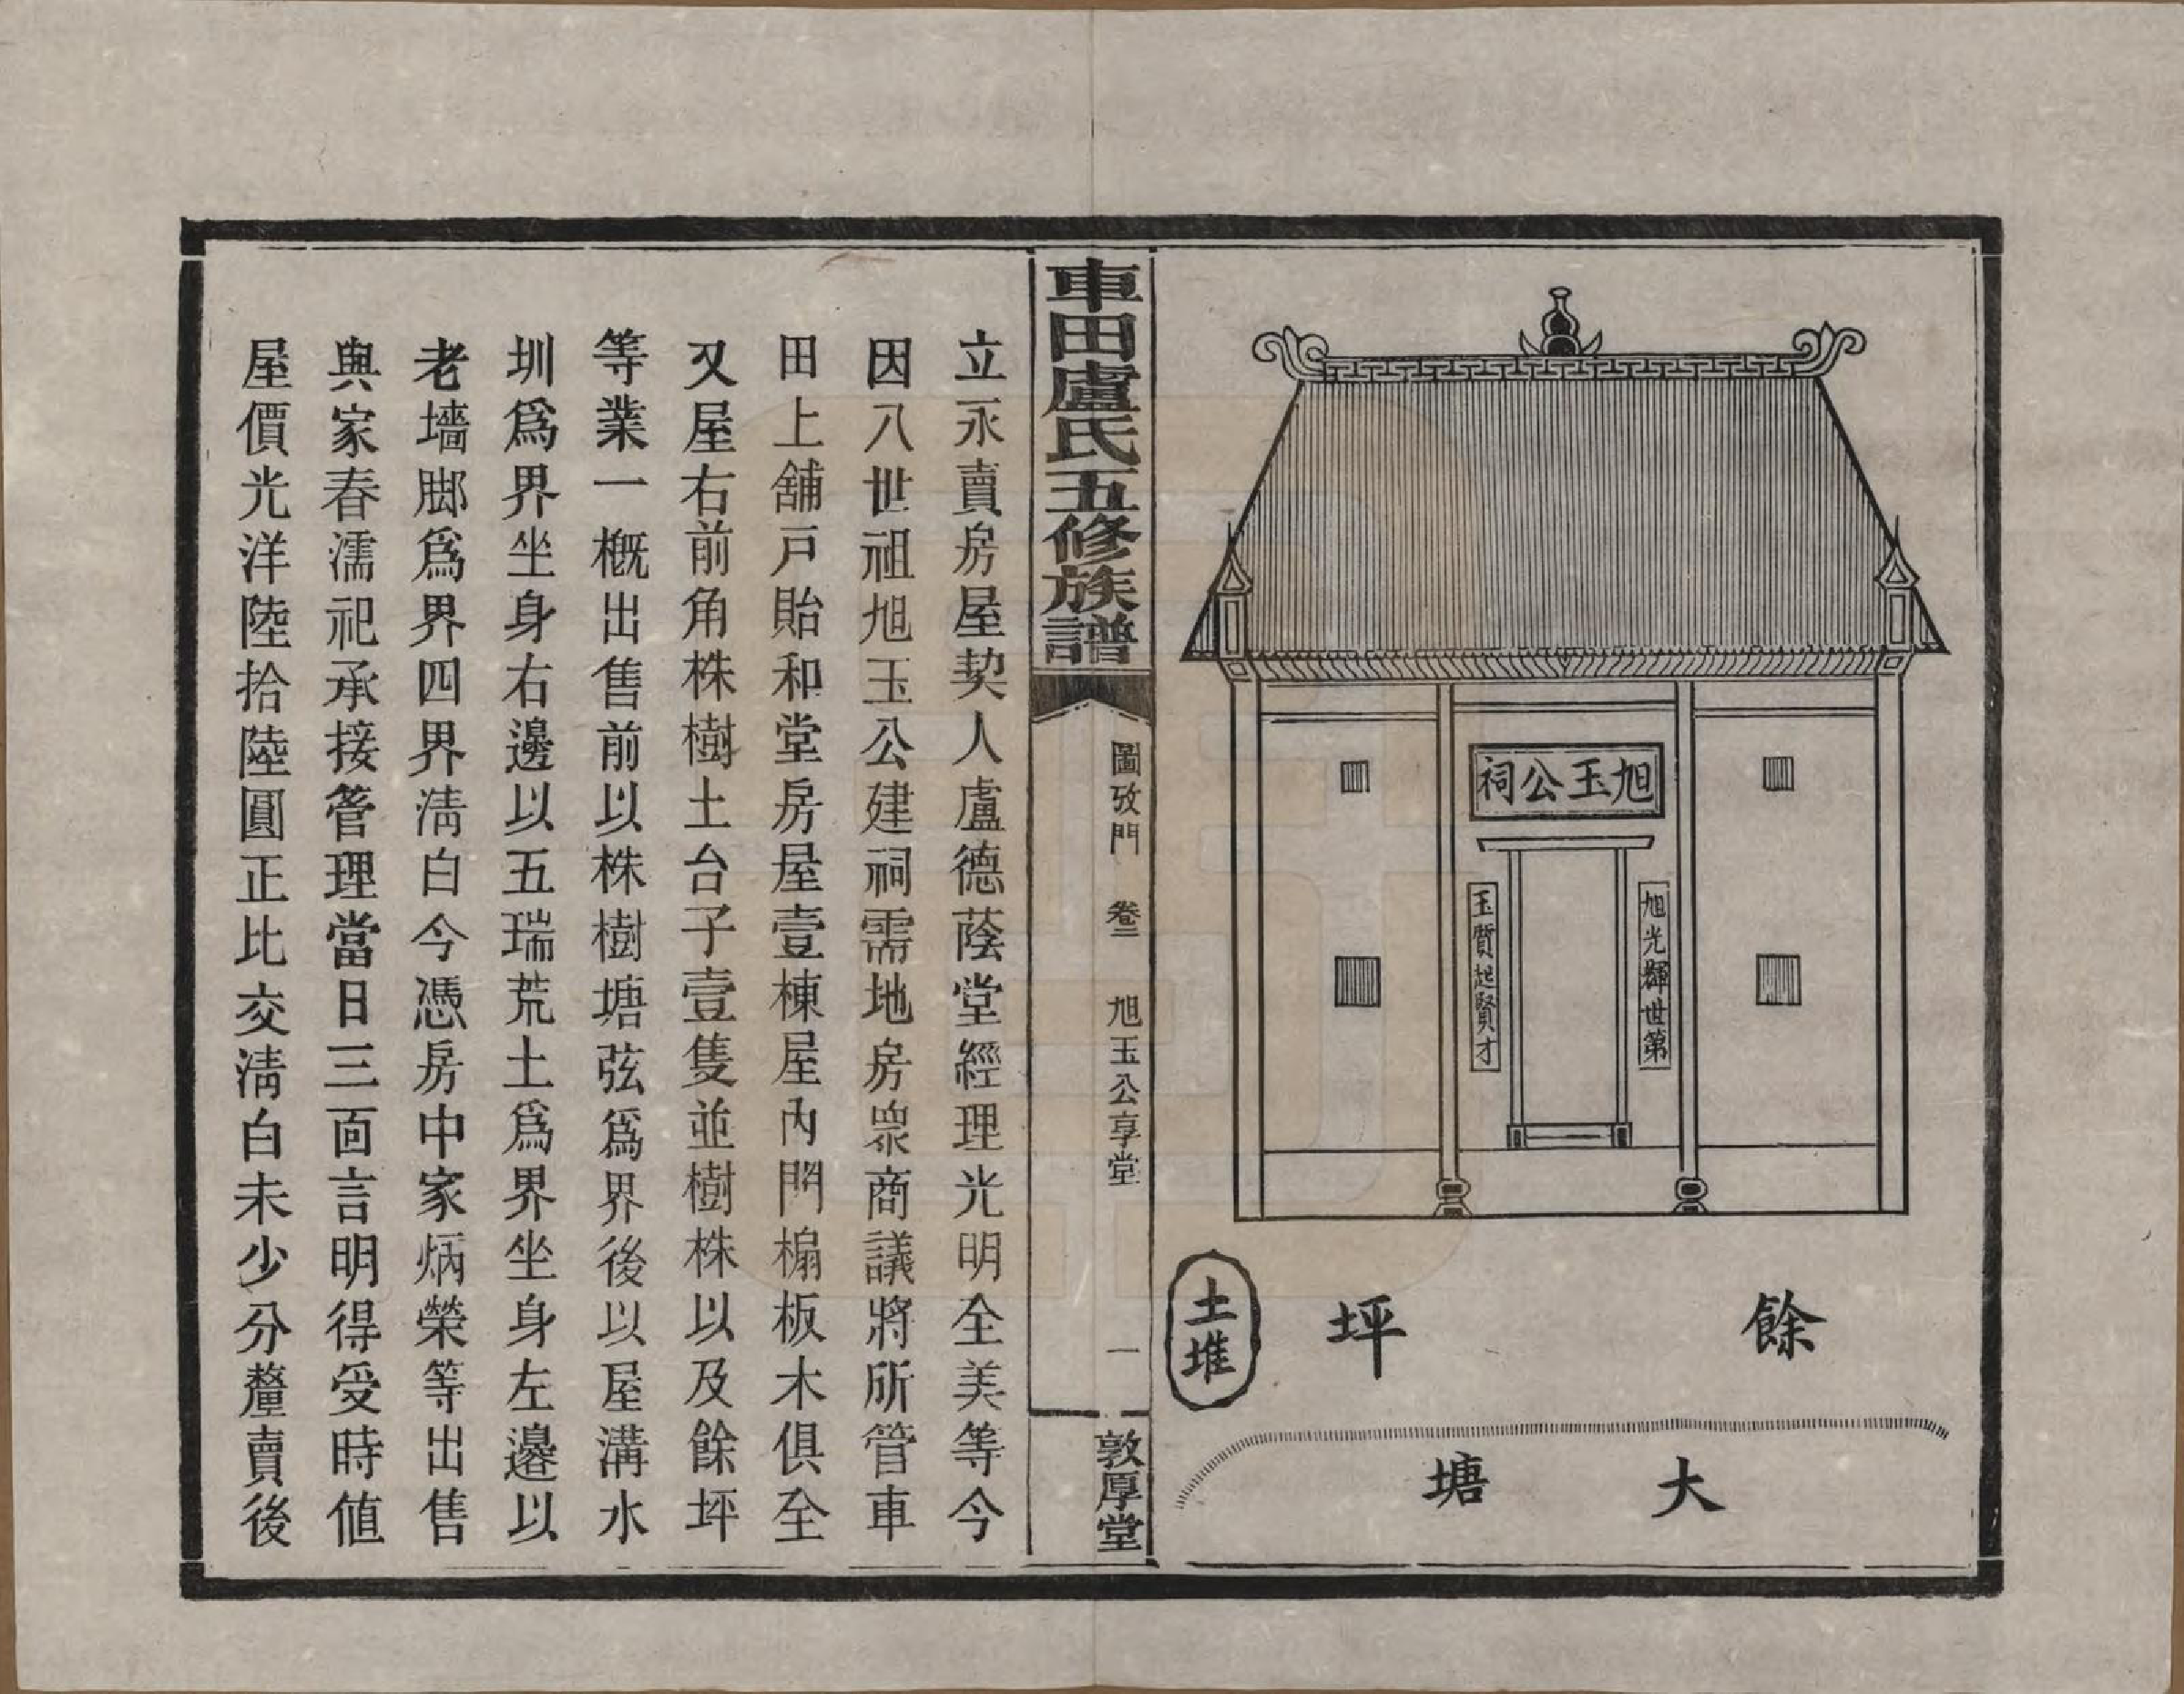 旭玉公祠
旭光輝世第
玉質起賢才
餘坪
土堆
大塘
車田盧氏五修族譜
圖攷門 卷三 旭玉公享堂 一
敦厚堂
立永賣房屋契人盧德蔭堂經理光明全美等今
因八世祖旭玉公建祠需地房眾商議將所管車
田上舖戶貽和堂房屋壹棟屋內門門槅板木俱全
又屋右前角株樹土台子壹隻並樹株以及餘坪
等業一概出售前以株樹塘弦爲界後以屋溝水
圳爲界坐身右邊以五瑞荒土爲界坐身左邊以
老墻脚爲界四界淸白今憑房中家炳榮等出售
與家春濡祀承接管理當日三面言明得受時値
屋價光洋陸拾陸圓正比交淸白未少分釐賣後